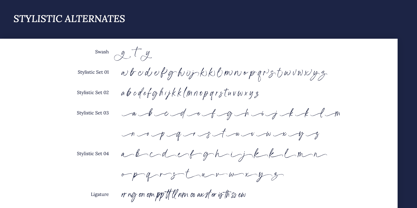 STYLISTIC ALTERNATES
Swash g t y
Stylistic Set 01 a b c d e f g h i j k k l m n o p q r s t u v w x y z
Stylistic Set 02 a b c d e f g h i j k k l m n o p q r s t u v w x y z
Stylistic Set 03 a b c d e f g h i j k k l m
n o p q r s t u v w x y z
Stylistic Set 04 a b c d e f g h i j k k l m n
o p q r s t u v w x y z
Ligature